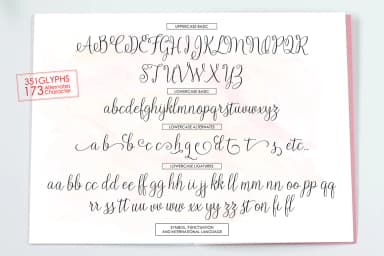 UPPERCASE BASIC
ABCDEFGHIJKLMNOPQR
STUVWXYZ
351GLYPHS
173 Alternates
Character
LOWERCASE BASIC
abcdefghyklmnopqrstuvwxyz
LOWERCASE ALTERNATES
a b c c h g e d t t s, etc..
LOWERCASE LIGATURES
aa bb cc dd ee ff gg hh ii jj kk ll mm nn oo pp qq
rr ss tt uu vv ww xx yy zz st on fi fl
SYMBOL, PUNCTUATION
AND INTERNATIONAL LANGUAGE